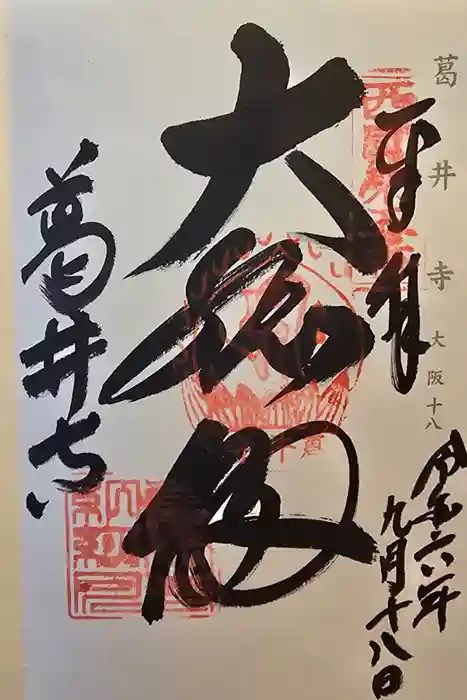 葛井寺 大阪十八
奉拝
令和六年
九月十八日
大悲
葛井寺